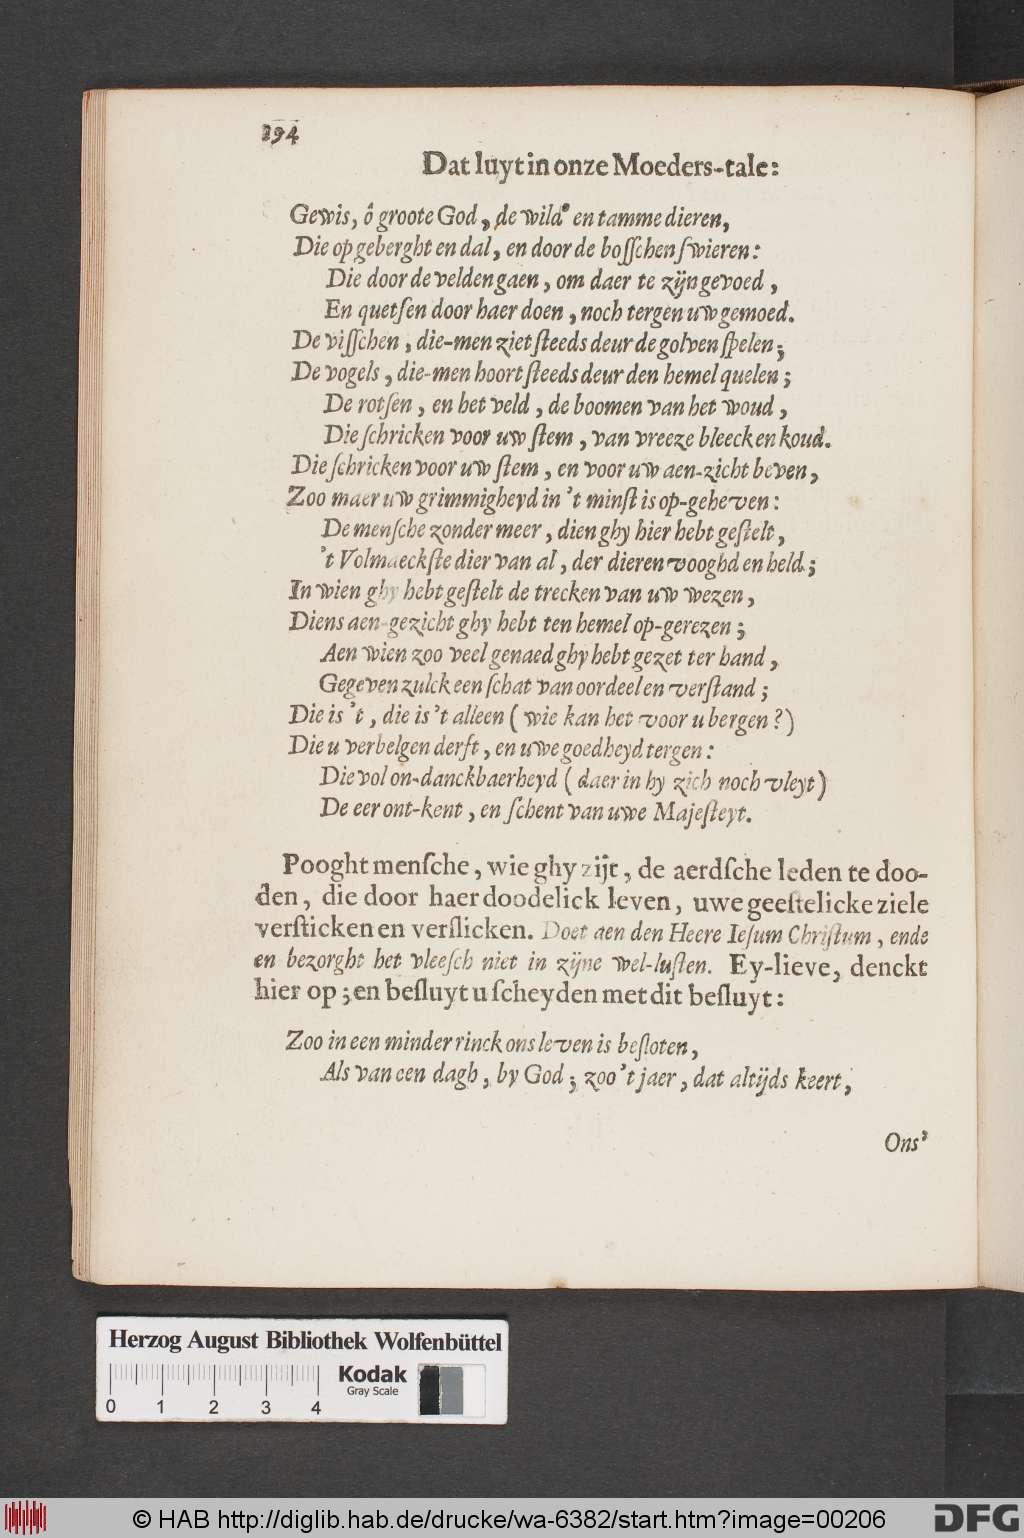 194
Dat luyt in onze Moeders-tale:
Gewis, ô groote God, de wild' en tamme dieren,
Die op geberght en dal, en door de boſſchen ſwieren:
Die door de velden gaen, om daer te zijn gevoed,
En quetſen door haer doen, noch tergen uw gemoed.
De viſſchen, die-men ziet ſteeds deur de golven ſpelen;
De vogels, die-men hoort ſteeds deur den hemel quelen;
De rotſen, en het veld, de boomen van het woud,
Die ſchricken voor uw ſtem, van vreeze bleeck en koud.
Die ſchricken voor uw ſtem, en voor uw aen-zicht beven,
Zoo maer uw grimmigheyd in 't minſt is op-geheven:
De menſche zonder meer, dien ghy hier hebt geſtelt,
't Volmaeckſte dier van al, der dieren vooghd en held;
In wien ghy hebt geſtelt de trecken van uw wezen,
Diens aen-gezicht ghy hebt ten hemel op-gerezen;
Aen wien zoo veel genaed ghy hebt gezet ter hand,
Gegeven zulck een ſchat van oordeel en verſtand;
Die is 't, die is 't alleen (wie kan het voor u bergen?)
Die u verbelgen derft, en uwe goedheyd tergen:
Die vol on-danckbaerheyd (daer in hy zich noch vleyt)
De eer ont-kent, en ſchent van uwe Majeſteyt.
Pooght menſche, wie ghy zijt, de aerdſche leden te doo-
den, die door haer doodelick leven, uwe geeſtelicke ziele
verſticken en verſlicken. Doet aen den Heere Ieſum Chriſtum, ende
en bezorght het vleeſch niet in zijne wel-luſten. Ey-lieve, denckt
hier op; en beſluyt u ſcheyden met dit beſluyt:
Zoo in een minder rinck ons leven is beſloten,
Als van een dagh, by God; zoo 't jaer, dat altijds keert,
Ons'
Herzog August Bibliothek Wolfenbüttel
Kodak
Gray Scale
0 1 2 3 4
© HAB http://diglib.hab.de/drucke/wa-6382/start.htm?image=00206
DFG